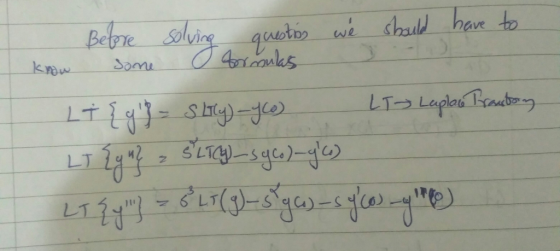 Before solving question we should have to
know some formulas
LT {y'} = SLT(y) - y(0) LT → Laplace Transform
LT {y"} = s²LT(y) - sy(0) - y'(0)
LT {y'''} = s³ LT(y) - s² y(0) - s y'(0) - y''(0)